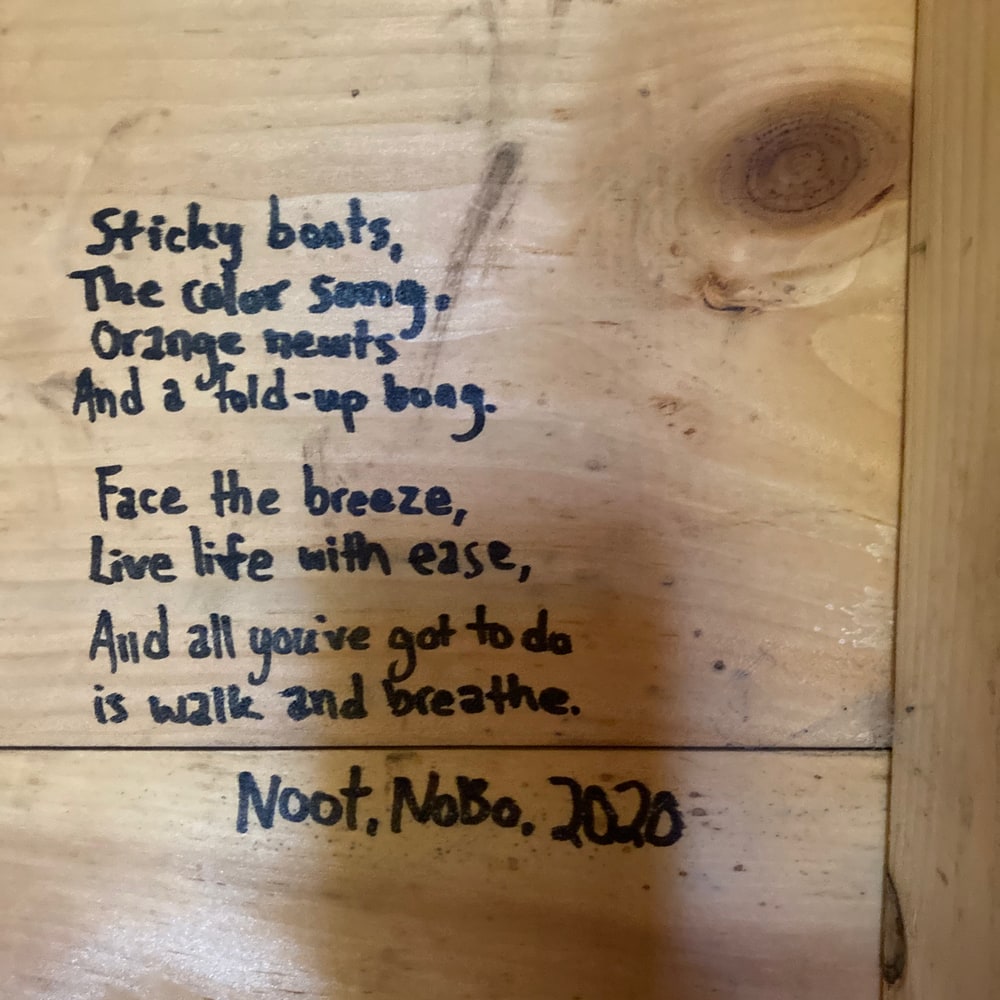 Sticky boots,
The color song.
Orange newts
And a fold-up bong.
Face the breeze,
Live life with ease,
And all you've got to do
is walk and breathe.
Noot, NoBo. 2020